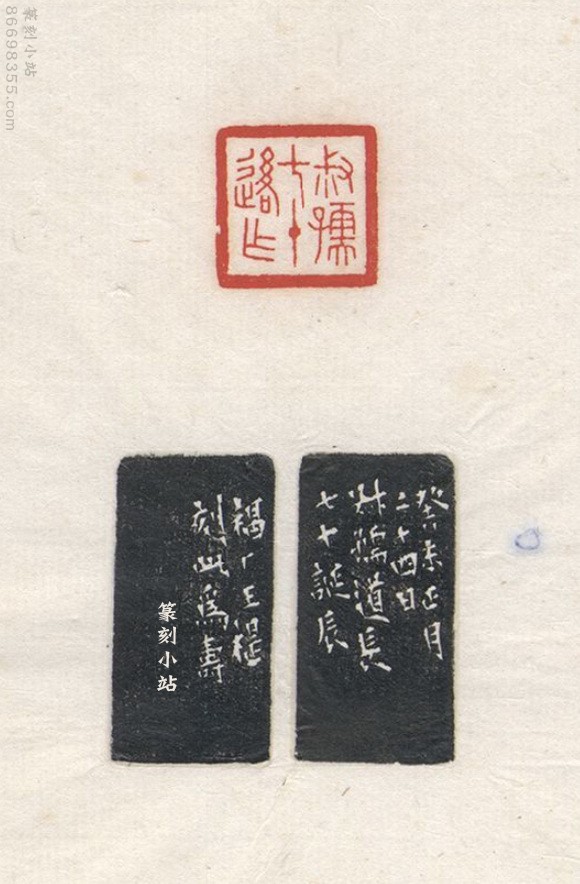 篆刻小站
86698355.com
叔孺
七十
後乍
癸未正月
二十四日
叔孺道長
七十誕辰
福厂王禔
刻此爲壽
篆刻小站